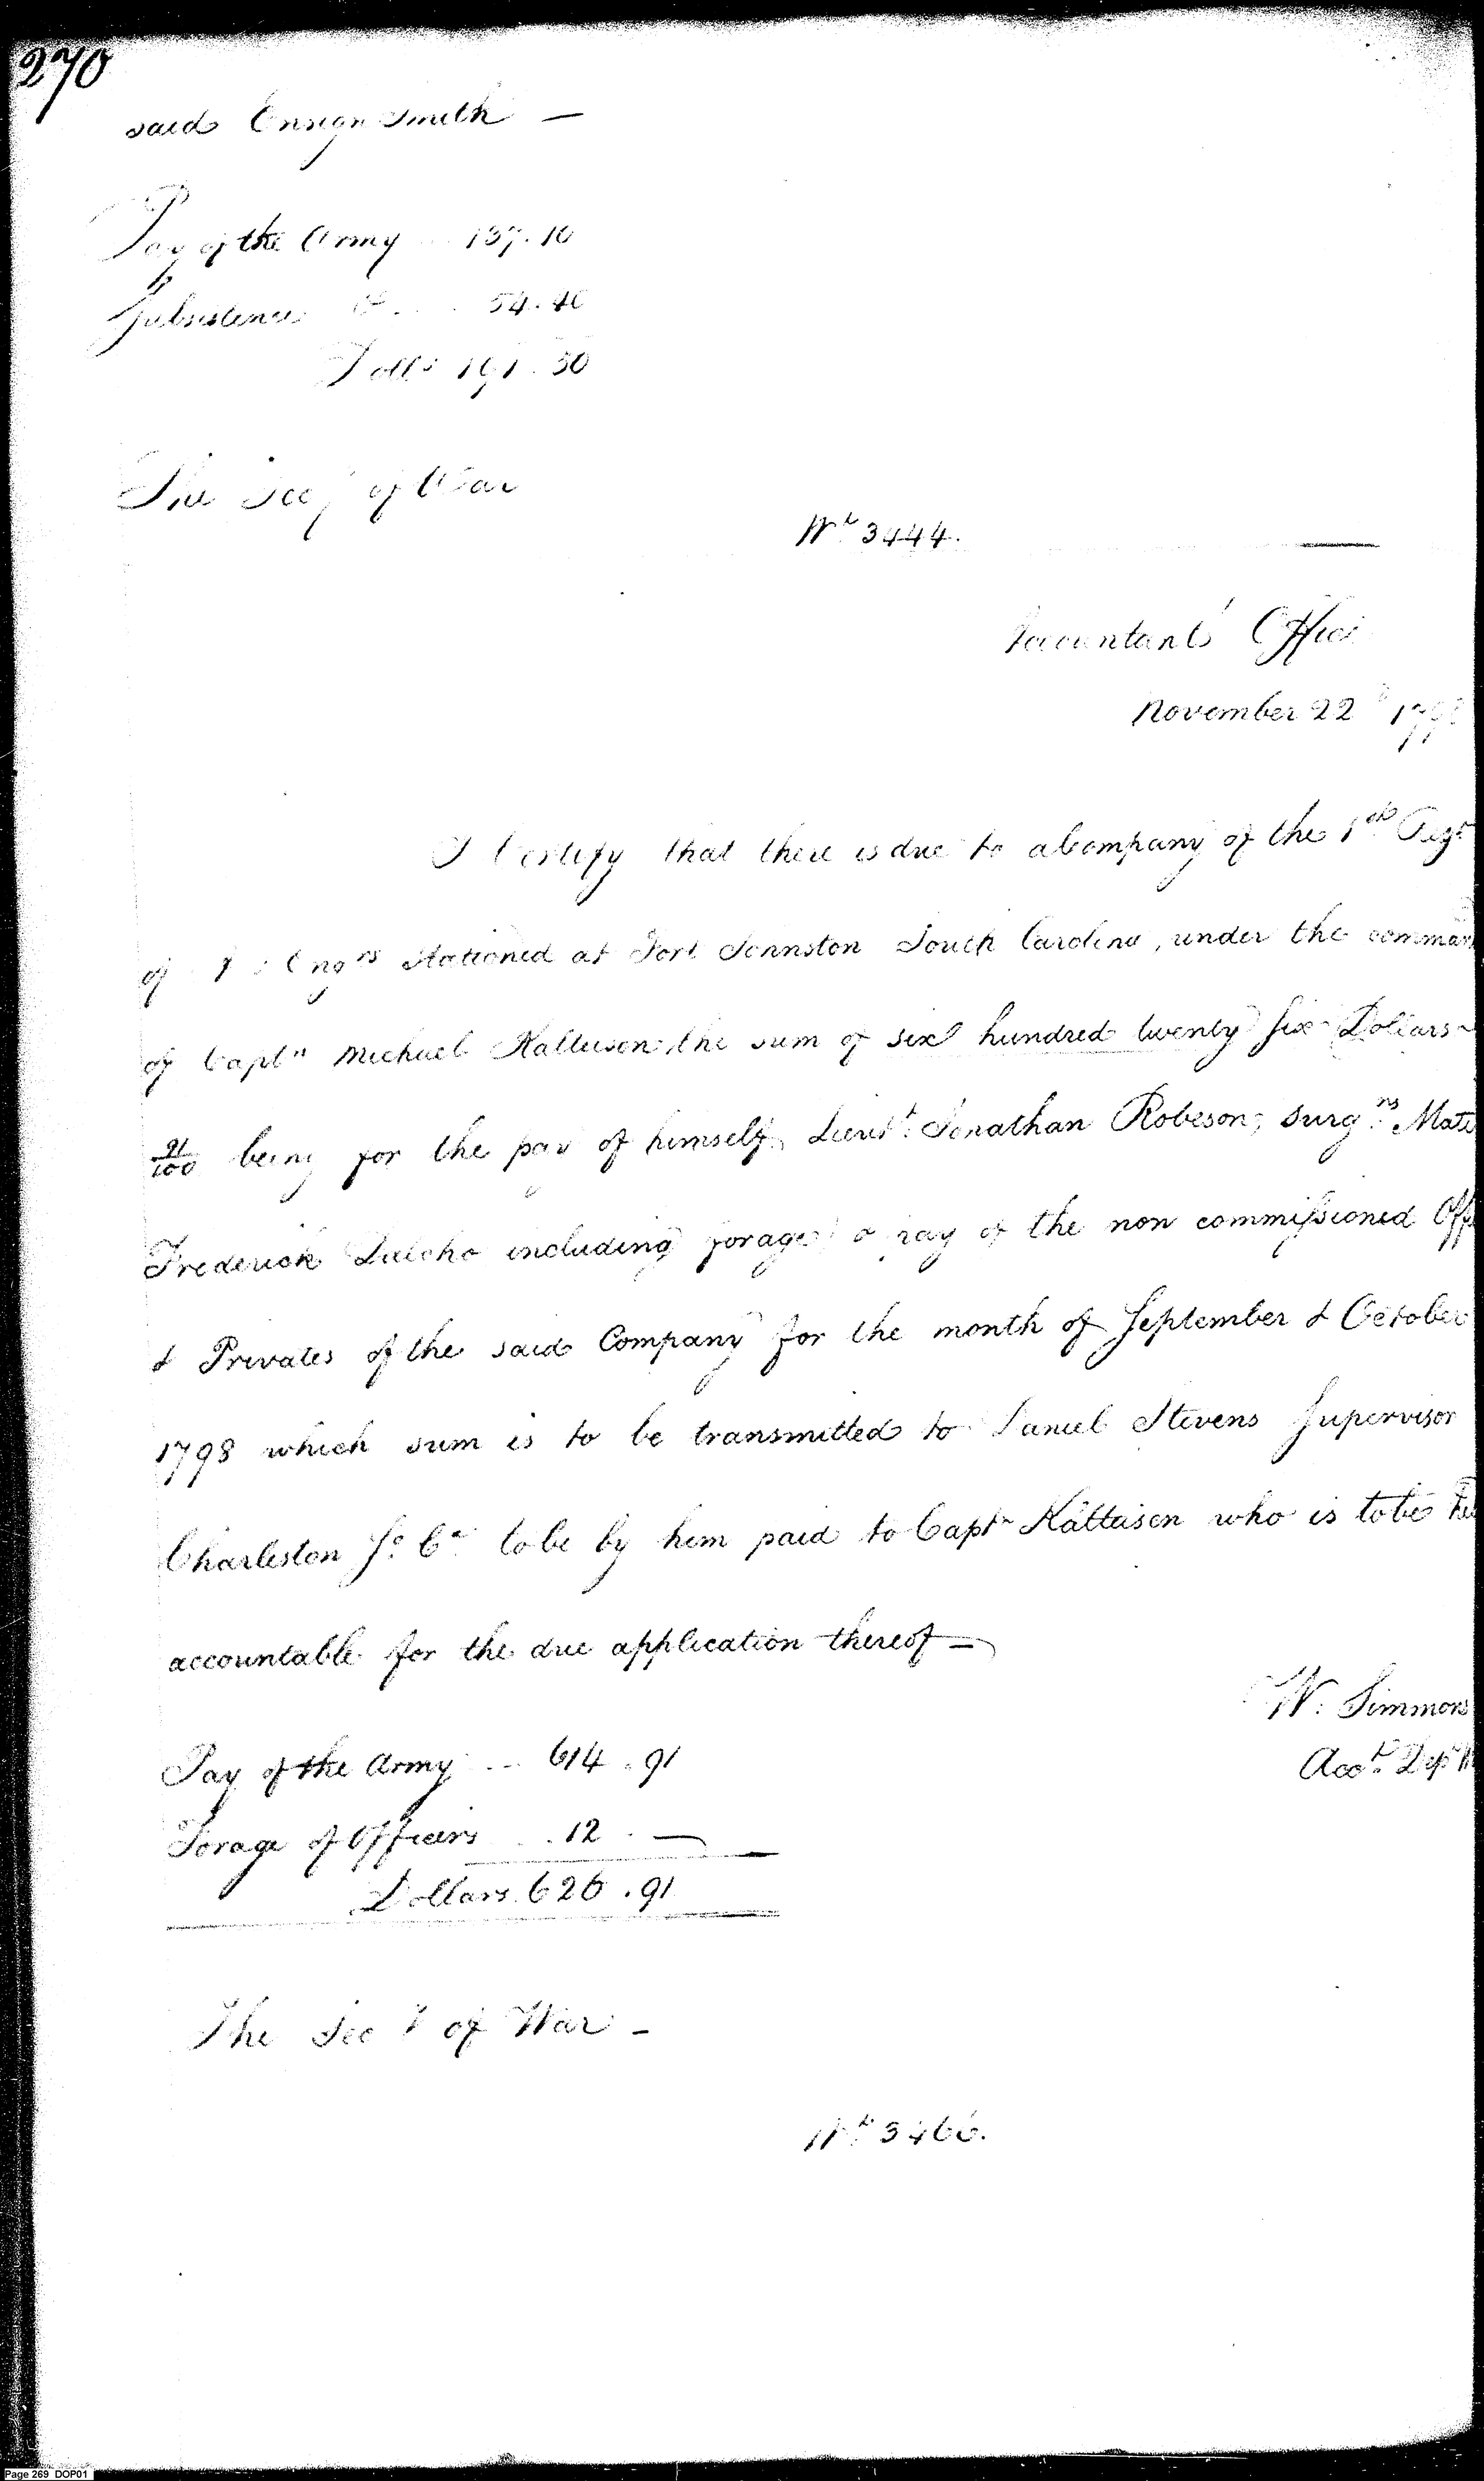 270
said Ensign Smith —
Pay of the Army .. 137.10
Subsistence .... 54.40
Dolls 191.50
The Secy of War
Wt 3444.
Accountants Office
November 22d 1798
I Certify that there is due to a Company of the 1st Regt
of Engrs Stationed at Fort Johnston South Carolina, under the comman
of Captn Michael Kalteisen, the sum of six hundred twenty six Dollars
91/100 being for the pay of himself, Lieut. Jonathan Robeson, Surgns Mate
Frederick Dalcho including forage & pay of the non commissioned Off
& Privates of the said Company for the month of September & October
1798 which sum is to be transmitted to Daniel Stevens Supervisor
Charleston So Ca to be by him paid to Captn Kalteisen who is to be
accountable for the due application thereof —
W. Simmons
Acct. Dept
Pay of the Army ... 614.91
Forage of Officers ... 12. —
Dollars 626.91
The Secy of War —
Wt 3466.
Page 269 DOP01